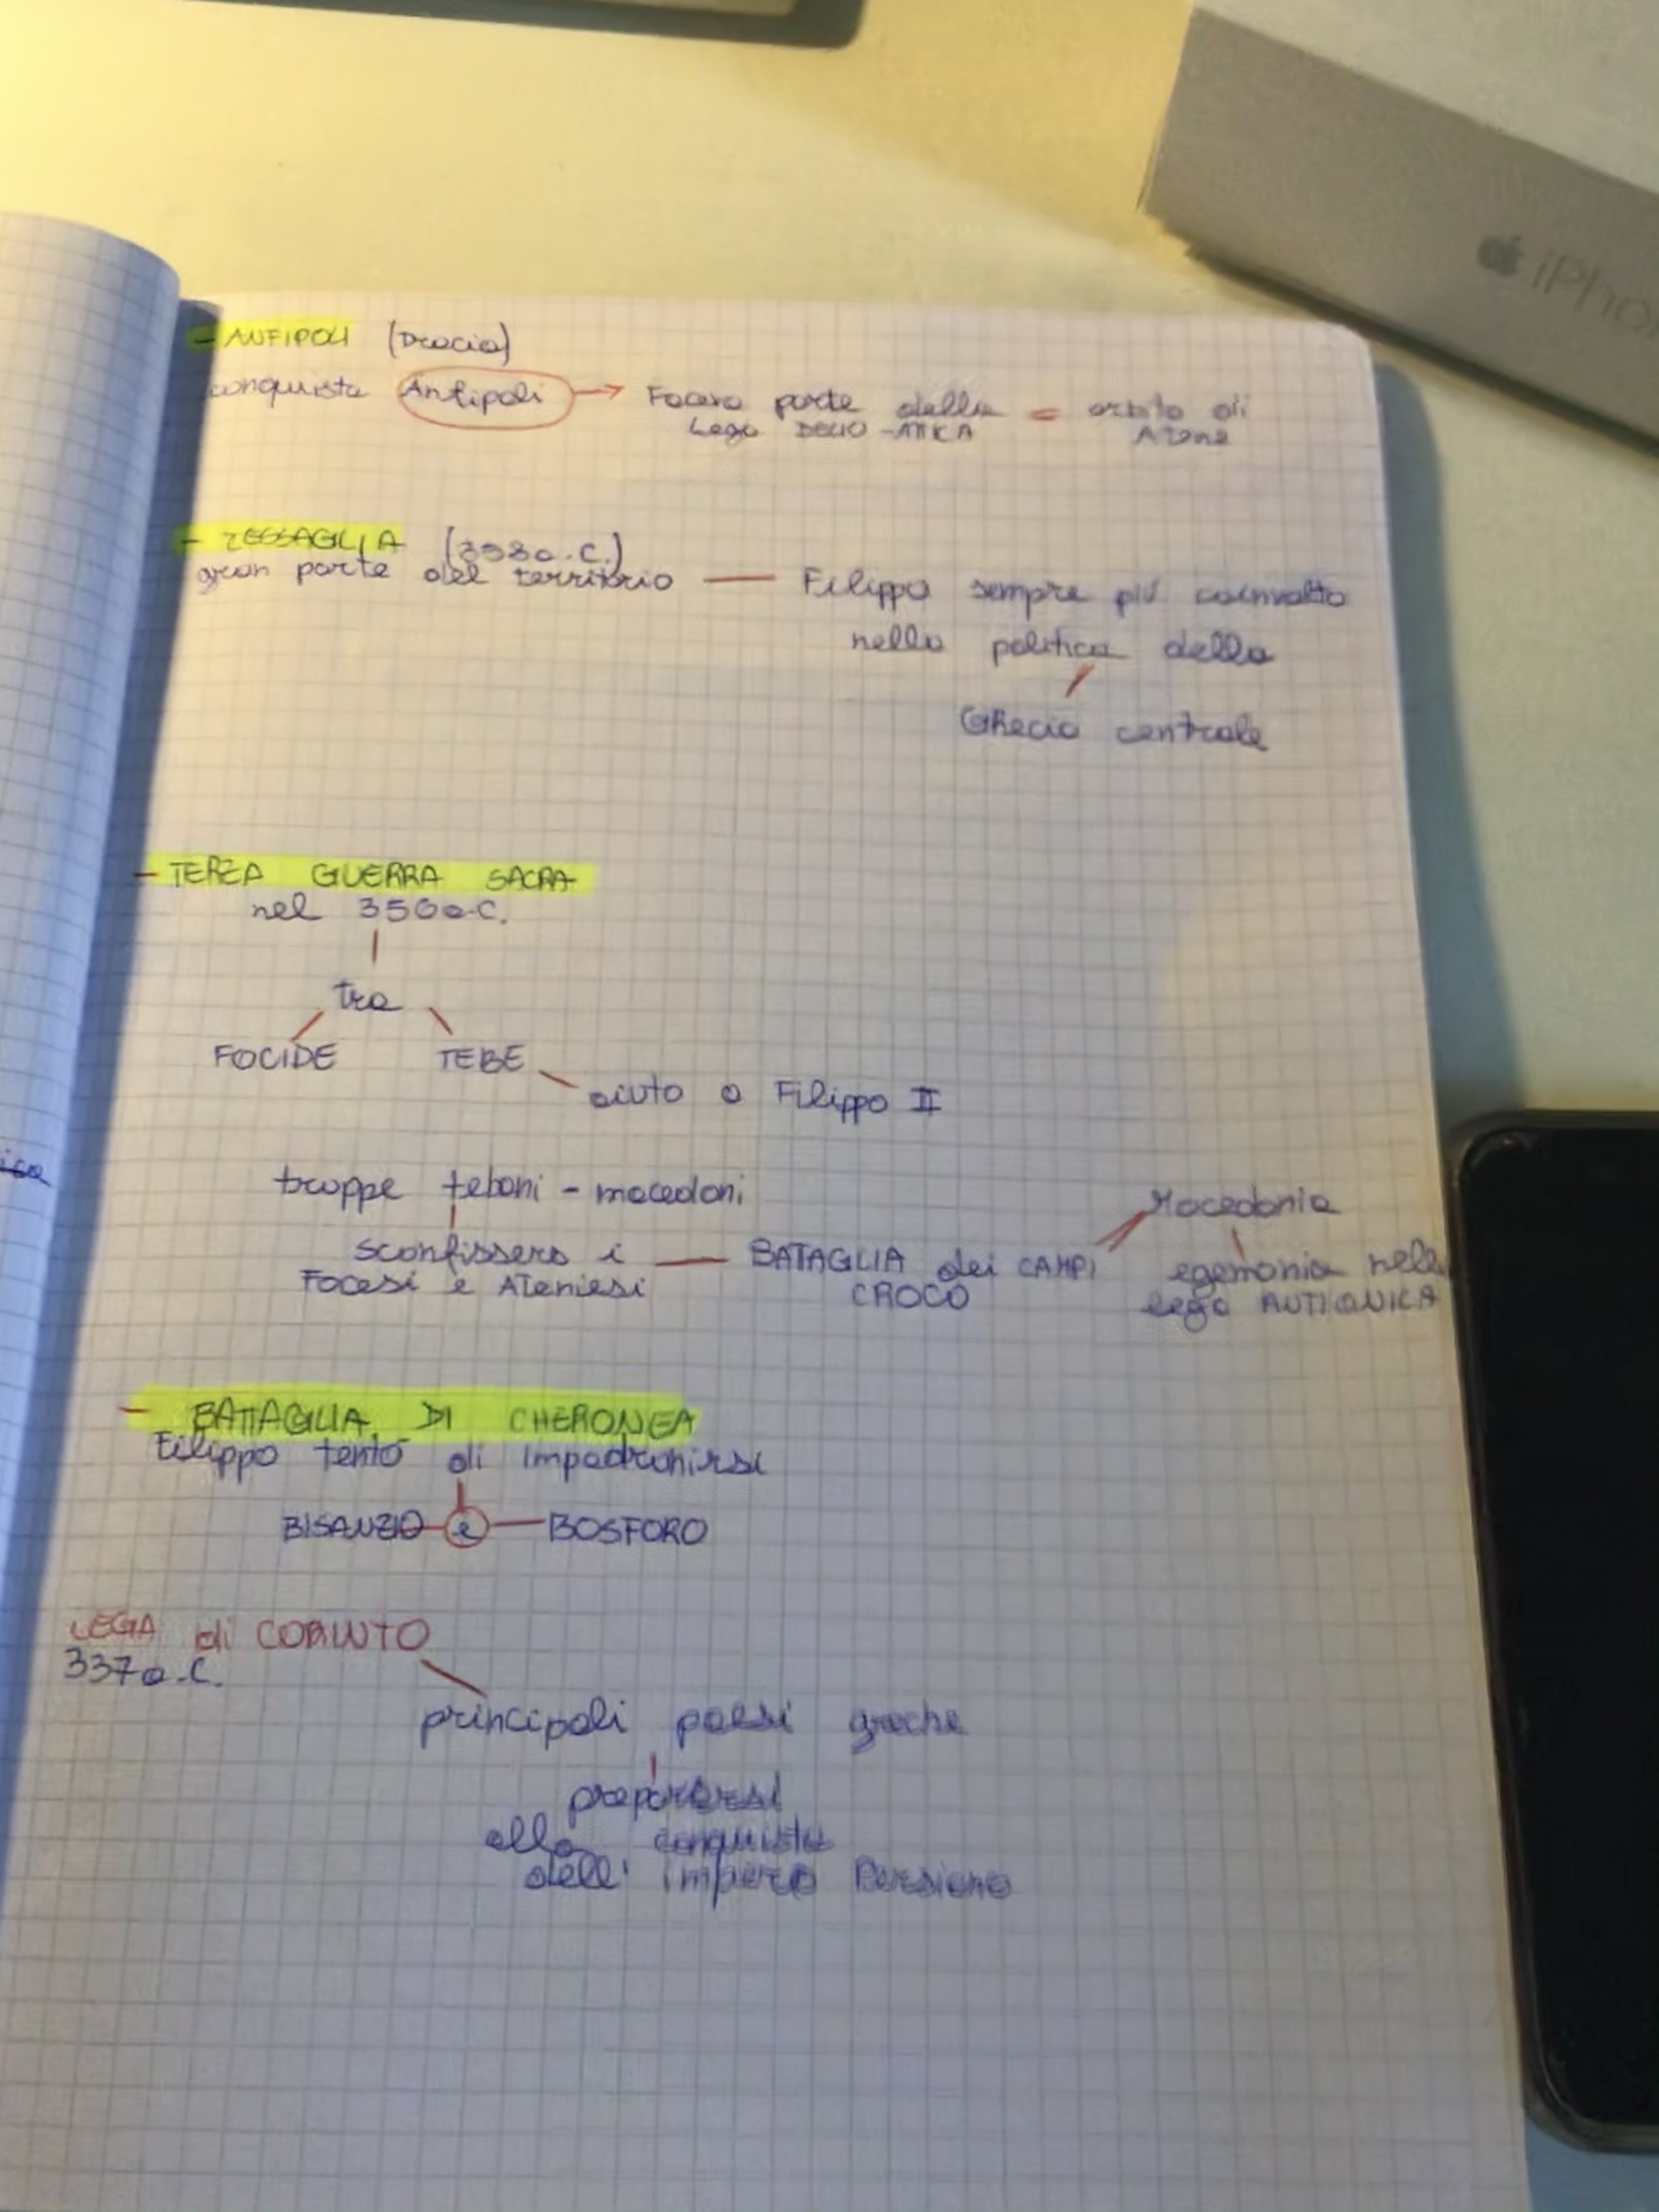 - ANFIPOLI (Tracia)
conquista Anfipoli → Faceva parte della = orbita di
Lega DELIO-ATTICA Atene
- TESSAGLIA (353 a.C.)
gran parte del territorio — Filippo sempre più coinvolto
nella politica della
Grecia centrale
- TERZA GUERRA SACRA
nel 356 a.C.
tra
FOCIDE TEBE
aiuto a Filippo II
truppe tebani - macedoni
Macedonia
sconfissero i — BATAGLIA dei CAMPI egemonia nella
Focesi e Ateniesi CROCO lega
- BATTAGLIA DI CHERONEA
Filippo tentò di impadronirsi
BISANZIO e BOSFORO
LEGA di CORINTO
337 a.C.
principali paesi greche
prepararsi
alla conquista
dell'impero Persiano
iPho